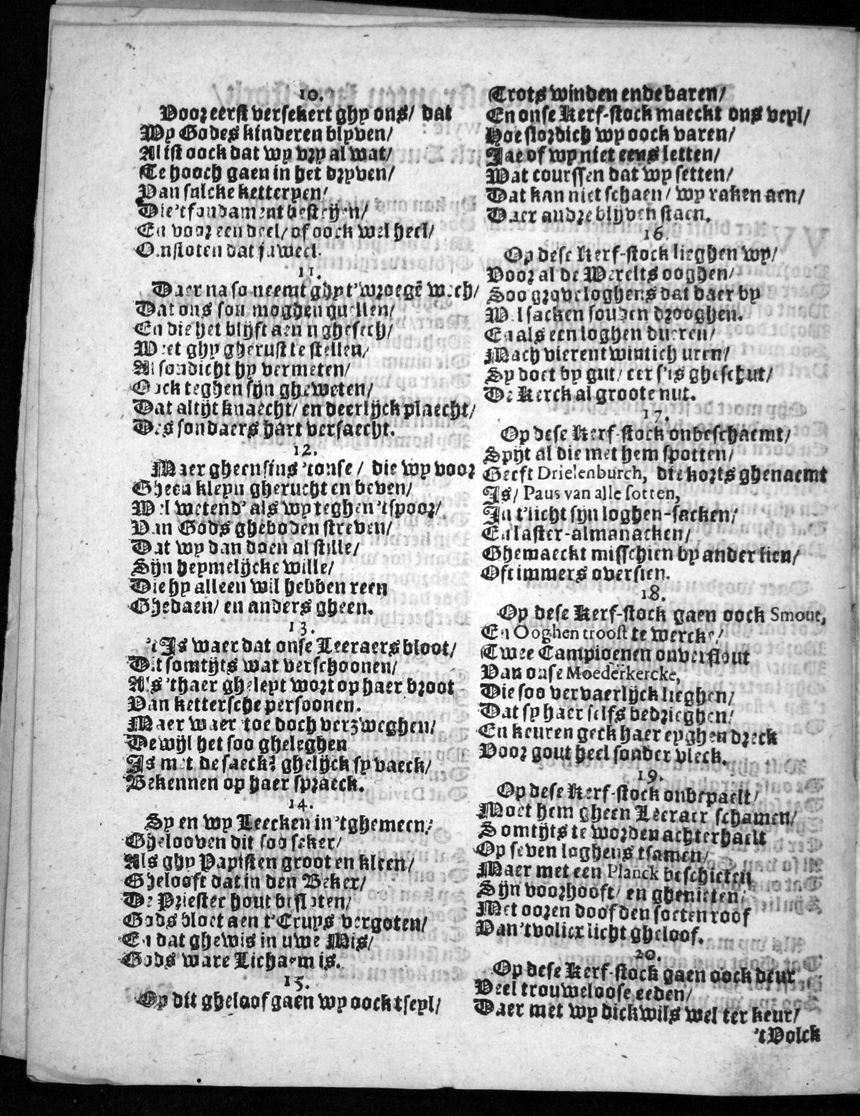 10.
Voor eerst versekert ghy ons/ dat
Wy Godes kinderen blyven/
Al ist oock dat wy vry al wat/
Te hooch gaen in het dryven/
Van sulcke ketteryen/
Die 't fondament bestryen/
En voor een deel/ of oock wel heel/
Omstoten dat juweel.
11.
Daer na so neemt ghy t'wroegē wech/
Dat ons sou moghen quellen/
En die het blijft aen u ghesech/
Weet ghy gherust te stellen/
Al sondicht hy vermeten/
Oock teghen sijn gheweten/
Dat altijt knaecht/ en deerlijck plaecht/
Des sondaers hart versaecht.
12.
Maer gheensins 'tonse/ die wy voor
Gheen kleyn gherucht en beven/
Wel wetend' als wy teghen 'tspoor/
Van Gods gheboden streven/
Dat wy dan doen al stille/
Sijn heymelijcke wille/
Die hy alleen wil hebben reen
Ghedaen/ en anders gheen.
13.
't Is waer dat onse Leeraers bloot/
Dit somtijts wat verschoonen/
Als 'thaer gheleyt wort op haer broot
Van kettersche persoonen.
Maer waer toe doch verzweghen/
Dewijl het soo gheleghen
Is met de saeck? ghelijck sy vaeck/
Bekennen op haer spraeck.
14.
Sy en wy Leecken in 'tghemeen/
Ghelooven dit soo seker/
Als ghy Papisten groot en kleen/
Ghelooft dat in den Beker/
De Priester hout besloten/
Gods bloet aen t'Cruys vergoten/
En dat ghewis in uwe Mis/
Gods ware Lichaem is.
15.
Op dit gheloof gaen wy oock tseyl/
Trots winden ende baren/
En onse Kerf-stock maeckt ons veyl/
Hoe slordich wy oock varen/
Jae of wy niet eens letten/
Wat courssen dat wy setten/
Dat kan niet schaen/ wy raken aen/
Daer andre blijven staen.
16.
Op dese Kerf-stock lieghen wy/
Voor al de Werelts ooghen/
Soo grove loghens dat daer by
Wel sacken souden drooghen.
En als een loghen dueren/
Mach vierentwintich uren/
Sy doet by gut/ eer s'is gheschut/
De Kerck al groote nut.
17.
Op dese Kerf-stock onbeschaemt/
Spijt al die met hem spotten/
Geeft Drielenburch, die korts ghenaemt
Is/ Paus van alle sotten,
In t'licht sijn loghen-sacken/
En laster-almanacken/
Ghemaeckt misschien by ander lien/
Oft immers oversien.
18.
Op dese Kerf-stock gaen oock Smout,
En Ooghentroost te wercke/
Twee Campioenen onverslout
Van onse Moederkercke,
Die soo vervaerlijck lieghen/
Dat sy haer selfs bedrieghen/
En keuren geck haer eyghen dreck
Voor gout heel sonder vleck.
19.
Op dese Kerf-stock onbepaelt/
Moet hem gheen Leeraer schamen/
Somtijts te worden achterhaelt
Op seven loghens tsamen/
Maer met een Planck beschieten
Sijn voorhooft/ en ghenieten/
Met ooren doof den soeten roof
Van 'tvolcx licht gheloof.
20.
Op dese Kerf-stock gaen oock deur
Veel trouweloose eeden/
Daer met wy dickwils wel ter keur/
't Volck